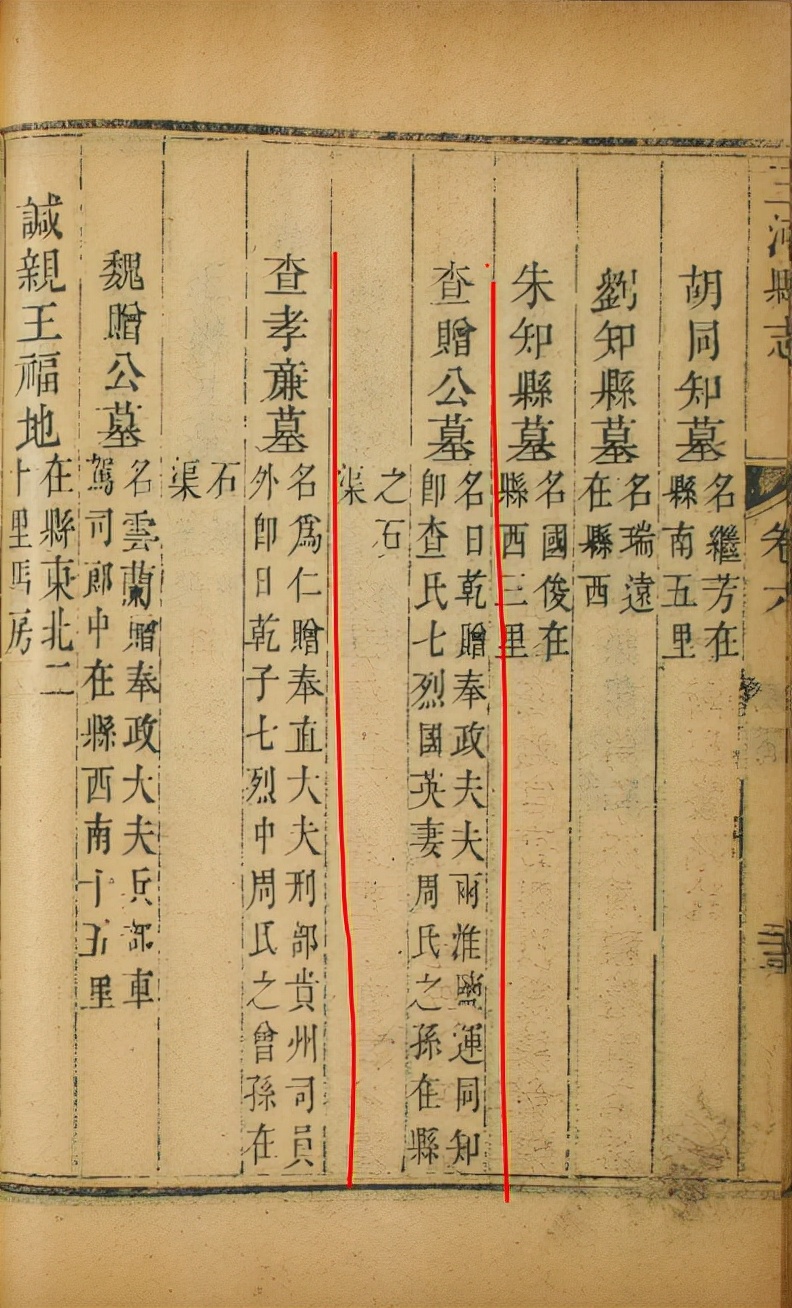 三河縣志
卷六
胡同知墓
名繼芳在
縣南五里
劉知縣墓
名瑞遠
在縣西
朱知縣墓
名國俊在
縣西三里
查贈公墓
名日乾贈奉政大夫兩淮鹽運同知
卽查氏七烈國英妻周氏之孫在縣
之石
渠
查孝廉墓
名爲仁贈奉直大夫刑部貴州司員
外卽日乾子七烈中周氏之曾孫在
石
渠
魏贈公墓
名雲蘭贈奉政大夫兵部車
駕司郎中在縣西南十五里
誠親王福地
在縣東北二
十里馬房